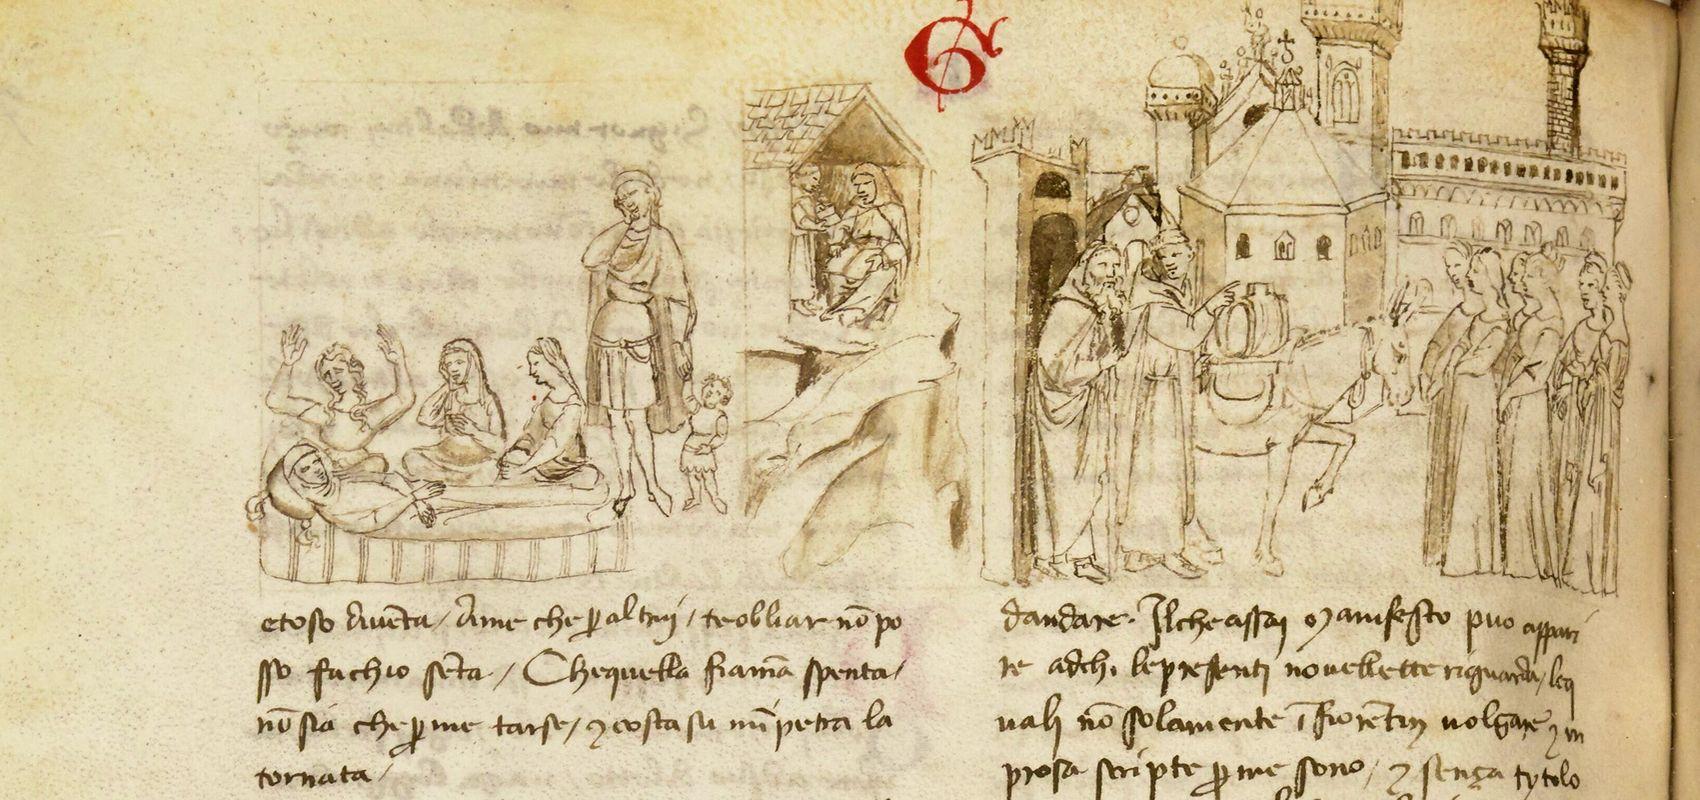 G
etoso diventa / Ame che p altrui / te obliar nō po
sso fu chio sēta / Che quella fiāma spenta /
nō sia che p me tarse / ⁊ costasu mi ĩpetra la
tornata /
dandare. Il che assai manifesto puo appari
re ad chi le presenti novellette riguarda / leq
uali nō solamente ī fiorentin volgare ⁊ in
prosa scripte p me sono / ⁊ sença tytolo